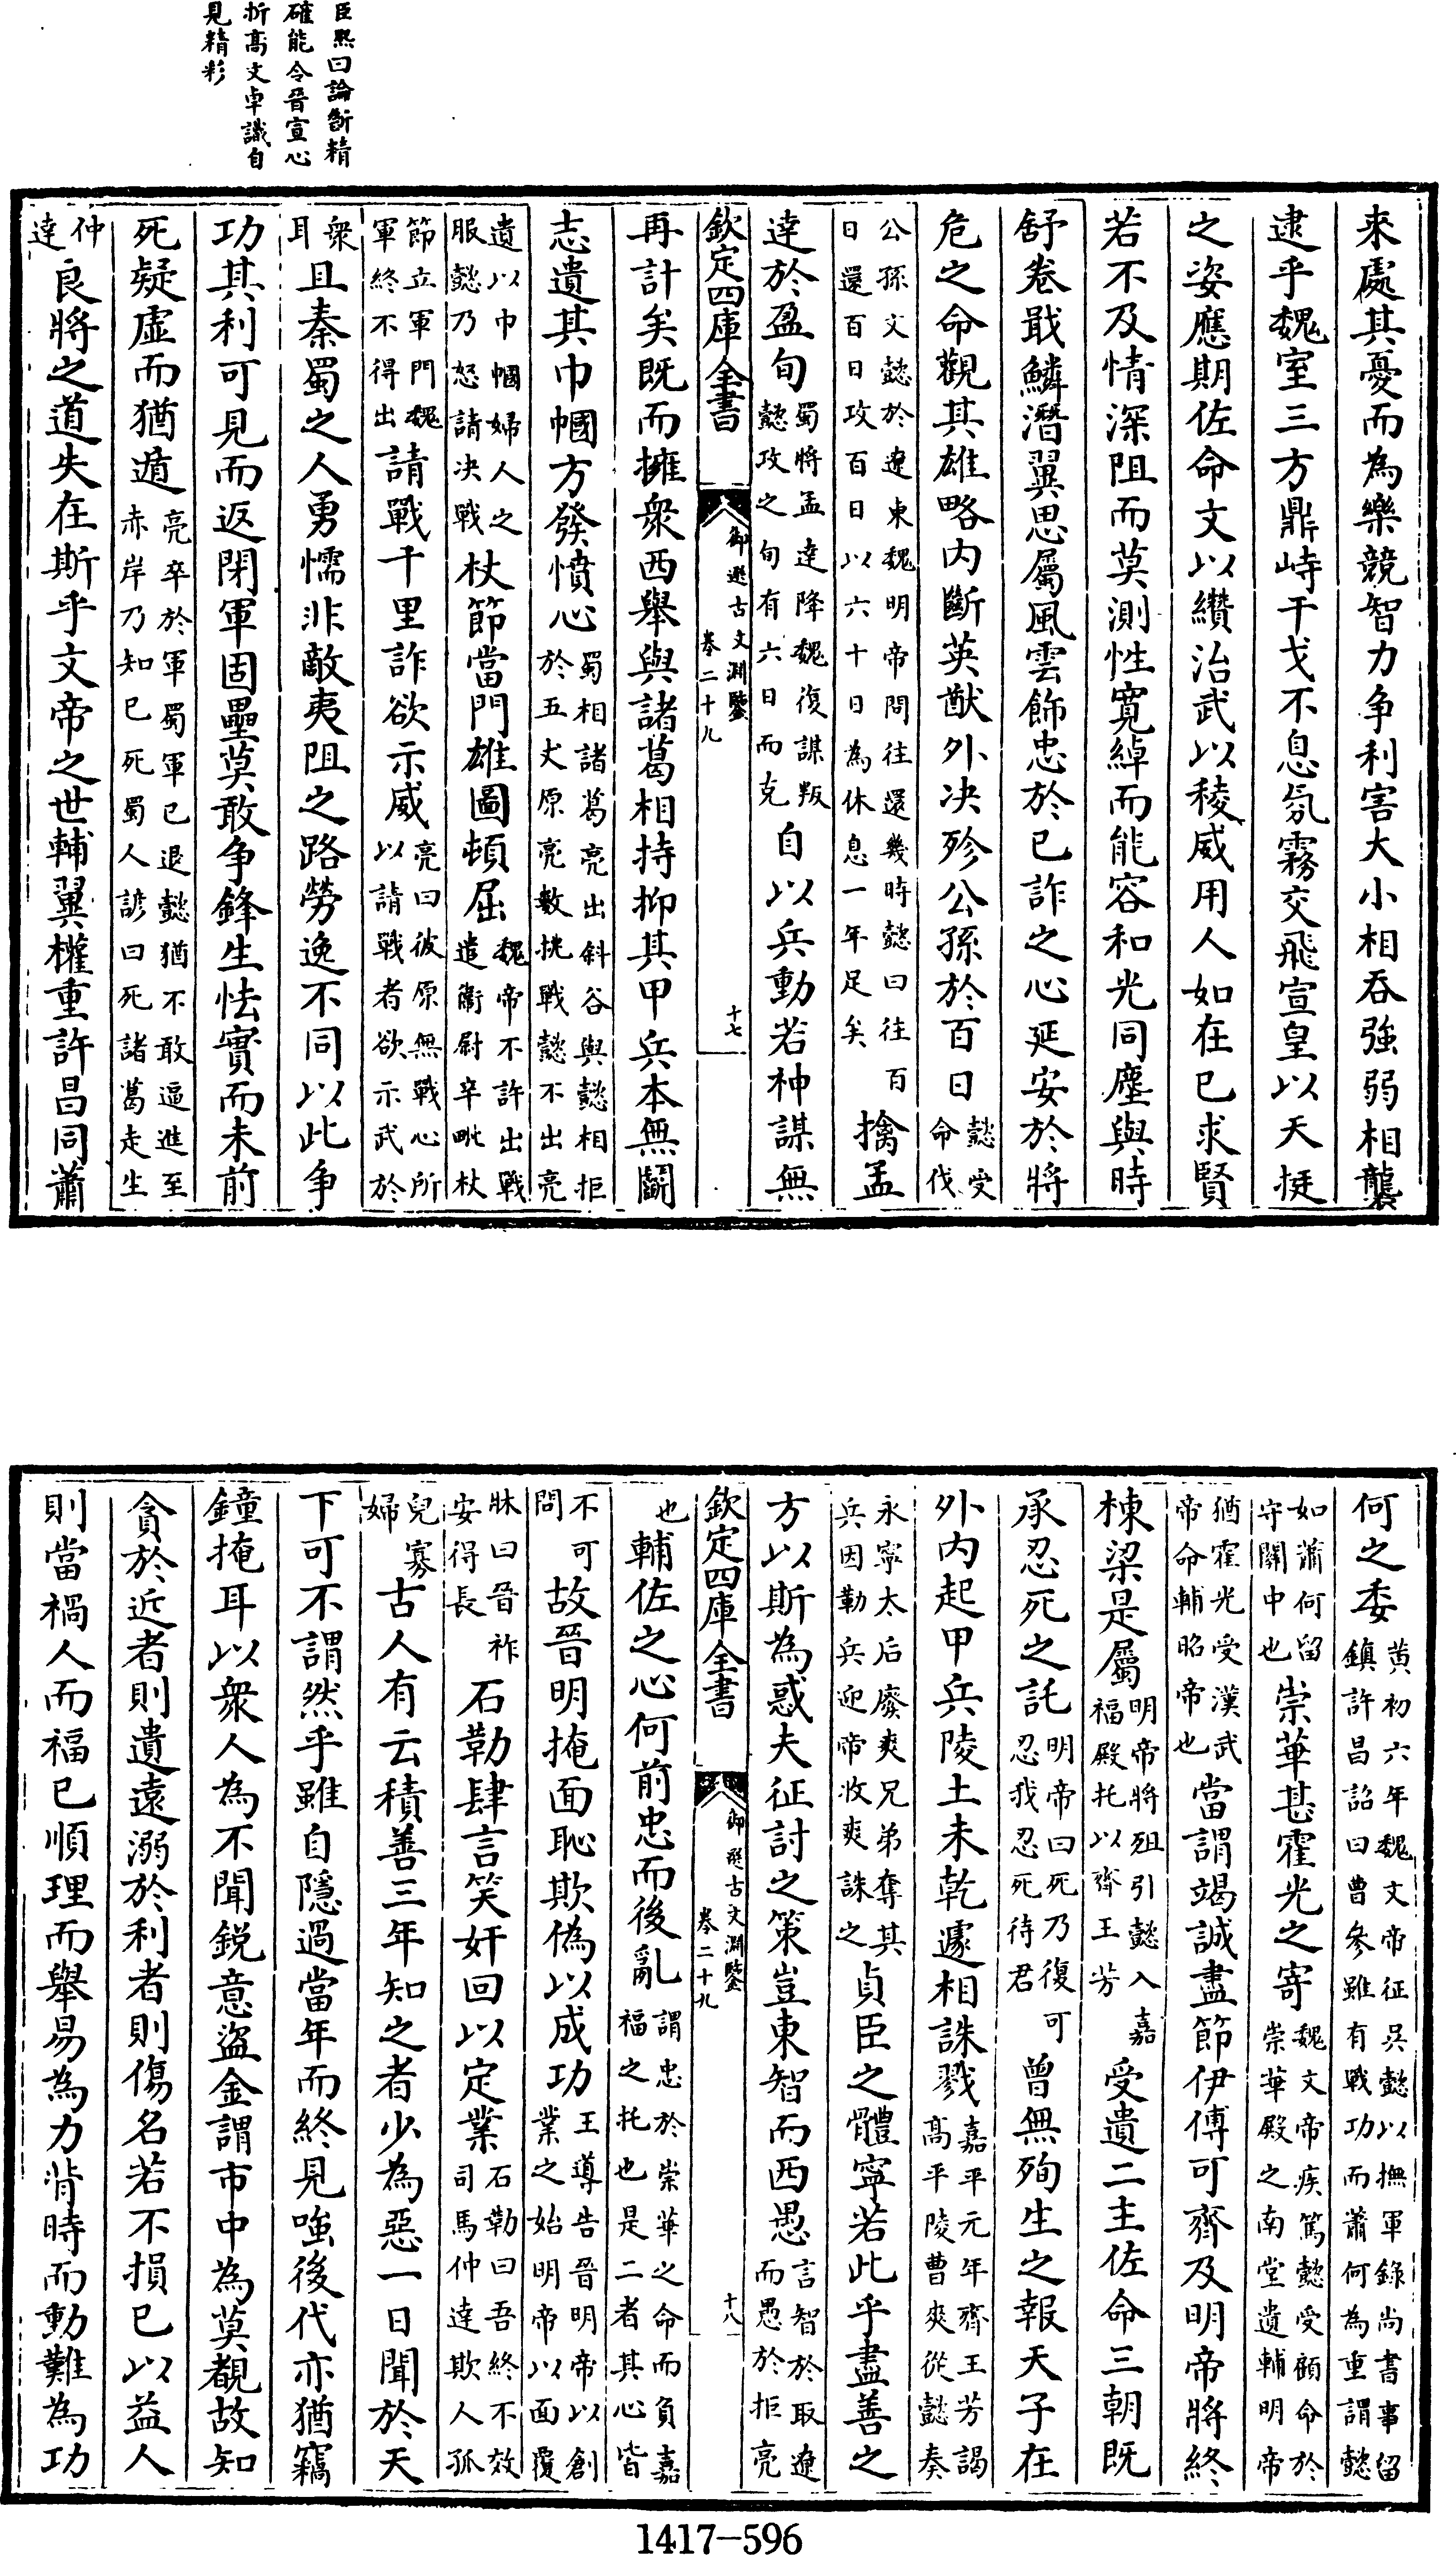 臣熙曰論斷精
確能令晉宣心
折高文卓識自
見精彩
来處其憂而為樂競智力争利害大小相吞強弱相襲
逮乎魏室三方鼎峙干戈不息氛霧交飛宣皇以天挺
之姿應期佐命文以纘治武以稜威用人如在已求賢
若不及情深阻而莫測性寛綽而能容和光同塵與時
舒卷戢鱗潛翼思屬風雲飾忠於已詐之心延安於將
危之命觀其雄略内斷英猷外决殄公孫於百日懿受命伐
公孫文懿於遼東魏明帝問往還幾時懿曰往百日還百日攻百日以六十日為休息一年足矣擒孟
達於盈旬蜀將孟達降魏復謀叛懿攻之旬有六日而克自以兵動若神謀無
欽定四庫全書 御選古文淵鑒 卷二十九 十七
再計矣既而擁衆西舉與諸葛相持抑其甲兵本無鬭
志遺其巾幗方發憤心蜀相諸葛亮出斜谷與懿相拒於五丈原亮數挑戰懿不出亮
遺以巾幗婦人之服懿乃怒請决戰杖節當門雄圖頓屈魏帝不許出戰遣衞尉辛毗杖
節立軍門魏軍終不得出請戰千里詐欲示威亮曰彼原無戰心所以請戰者欲示武於
衆耳且秦蜀之人勇懦非敵夷阻之路勞逸不同以此争
功其利可見而返閉軍固壘莫敢争鋒生怯實而未前
死疑虚而猶遁亮卒於軍蜀軍已退懿猶不敢逼進至赤岸乃知已死蜀人諺曰死諸葛走生
仲達良將之道失在斯乎文帝之世輔翼權重許昌同蕭
何之委黄初六年魏文帝征呉懿以撫軍錄尚書事留鎮許昌詔曰曹參雖有戰功而蕭何為重謂懿
如蕭何留守關中也崇華甚霍光之寄魏文帝疾篤懿受顧命於崇華殿之南堂遺輔明帝
猶霍光受漢武帝命輔昭帝也當謂竭誠盡節伊傅可齊及明帝將終
棟梁是屬明帝將殂引懿入嘉福殿托以齊王芳受遺二主佐命三朝既
承忍死之託明帝曰死乃復可忍我忍死待君曾無殉生之報天子在
外内起甲兵陵土未乾遽相誅戮嘉平元年齊王芳謁高平陵曹爽從懿奏
永寧太后廢爽兄弟奪其兵因勒兵迎帝收爽誅之貞臣之體寧若此乎盡善之
方以斯為惑夫征討之策豈東智而西愚言智於取遼而愚於拒亮
欽定四庫全書 御選古文淵鑒 卷二十九 十八
也輔佐之心何前忠而後亂謂忠於崇華之命而負嘉福之托也是二者其心皆
不可問故晉明掩面恥欺偽以成功王導告晉明帝以創業之始明帝以面覆
牀曰晉祚安得長石勒肆言笑奸回以定業石勒曰吾終不效司馬仲達欺人孤
兒寡婦古人有云積善三年知之者少為惡一日聞於天
下可不謂然乎雖自隱過當年而終見嗤後代亦猶竊
鐘掩耳以衆人為不聞銳意盜金謂市中為莫覩故知
貪於近者則遺遠溺於利者則傷名若不損已以益人
則當禍人而福已順理而舉易為力背時而動難為功
1417-596